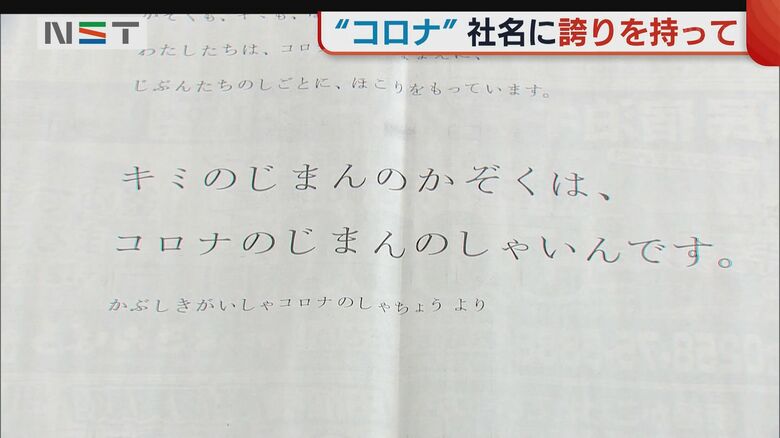 NST
“コロナ” 社名に誇りを持って
わたしたちは、コロ
じぶんたちのしごとに、ほこりをもっています。
キミのじまんのかぞくは、
コロナのじまんのしゃいんです。
かぶしきがいしゃコロナのしゃちょう より